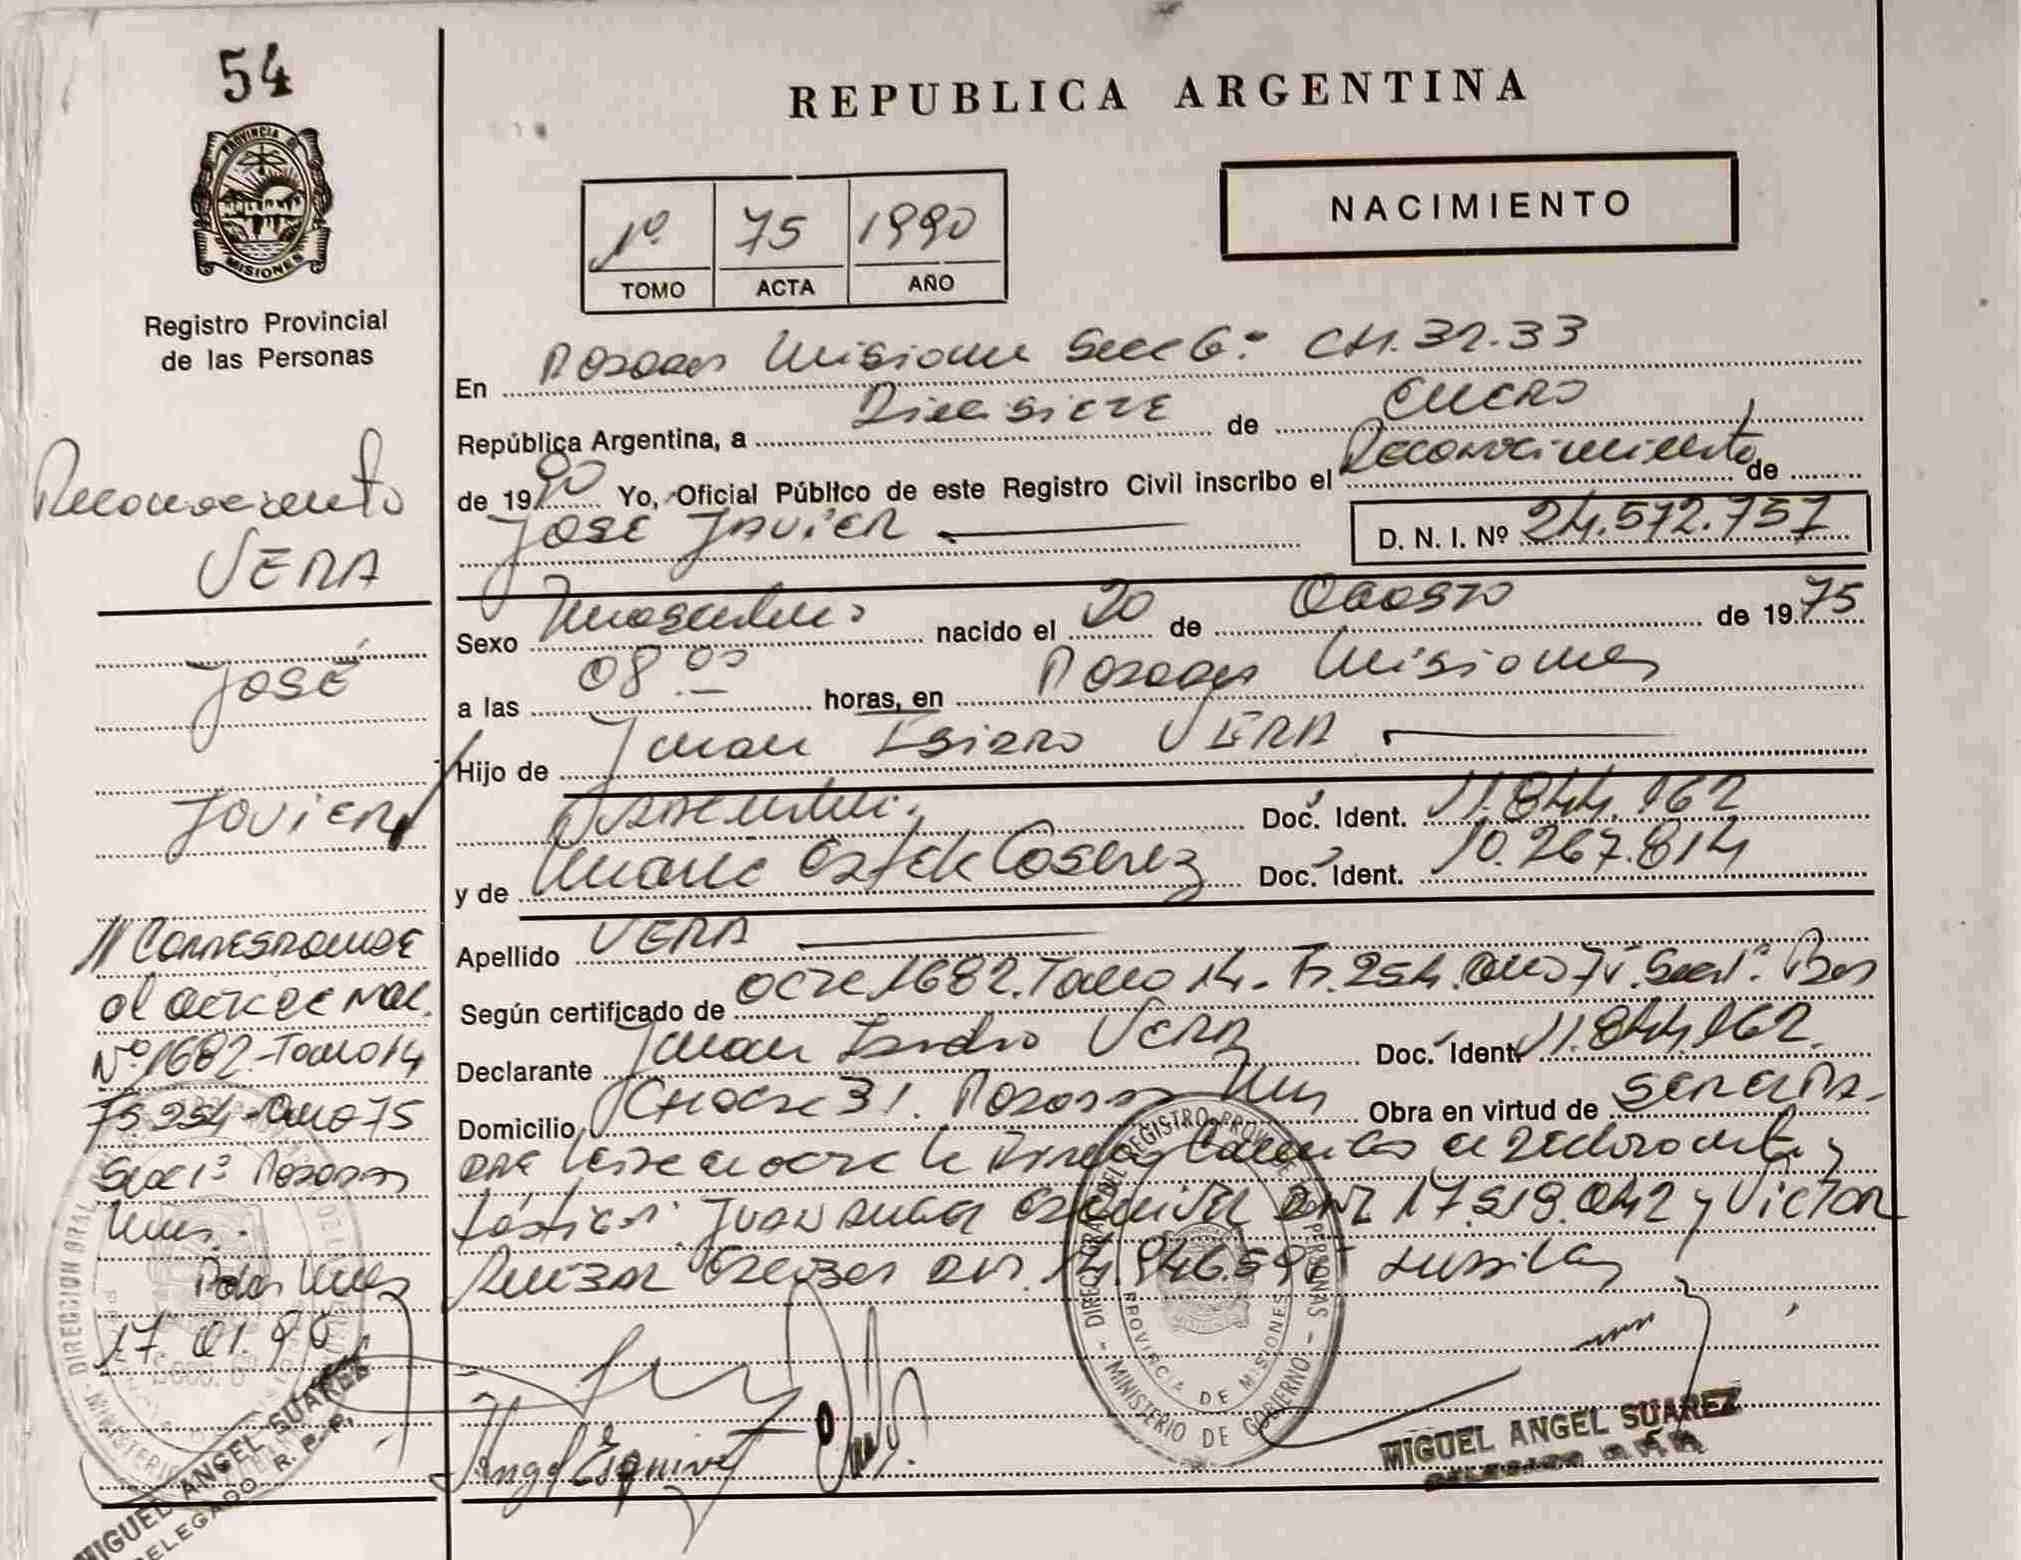 54
REPUBLICA ARGENTINA
PROVINCIA DE
MISIONES
Registro Provincial
de las Personas
1º 75 1990
TOMO ACTA AÑO
NACIMIENTO
En Posadas Misiones Secc 6ª CH. 32-33
República Argentina, a Diecisiete de Enero
de 1990 Yo, Oficial Público de este Registro Civil inscribo el Reconocimiento de
JOSE JAVIER D. N. I. Nº 24.572.757
Sexo Masculino nacido el 20 de Agosto de 1975
a las 08.00 horas, en Posadas Misiones
Hijo de Juan Isidro VERA
Doc. Ident. 11.844.162
y de Doc. Ident. 10.267.814
Apellido VERA
Según certificado de acta 1682. Tomo 14- Fs. 254. Año 75. Secc 1ª. Pdas
Declarante Juan Isidro VERA Doc. Ident. 11.844.162.
Domicilio CHacra 31. Posadas Mnes Obra en virtud de
testigos: JUAN ANGEL ESQUIVEL DNI 17. 042 y VICTOR
DNI. 14.946.
Reconocimiento
VERA
JOSÉ
JAVIER
// CORRESPONDE
al acta de Nac.
Nº 1682-Tomo 14
Fs. 254-Año 75
Secc 1ª Posadas
Mnes.
Pdas Mnes
17.01.90
DIRECCION GRAL
MINISTERIO
MIGUEL ANGEL SUAREZ
DELEGADO R. P. P.
Angel Esquivel
DIRECC. GRAL. DEL REGISTRO PROVINCIAL DE LAS PERSONAS
MINISTERIO DE GOBIERNO
PROVINCIA DE MISIONES
MIGUEL ANGEL SUAREZ